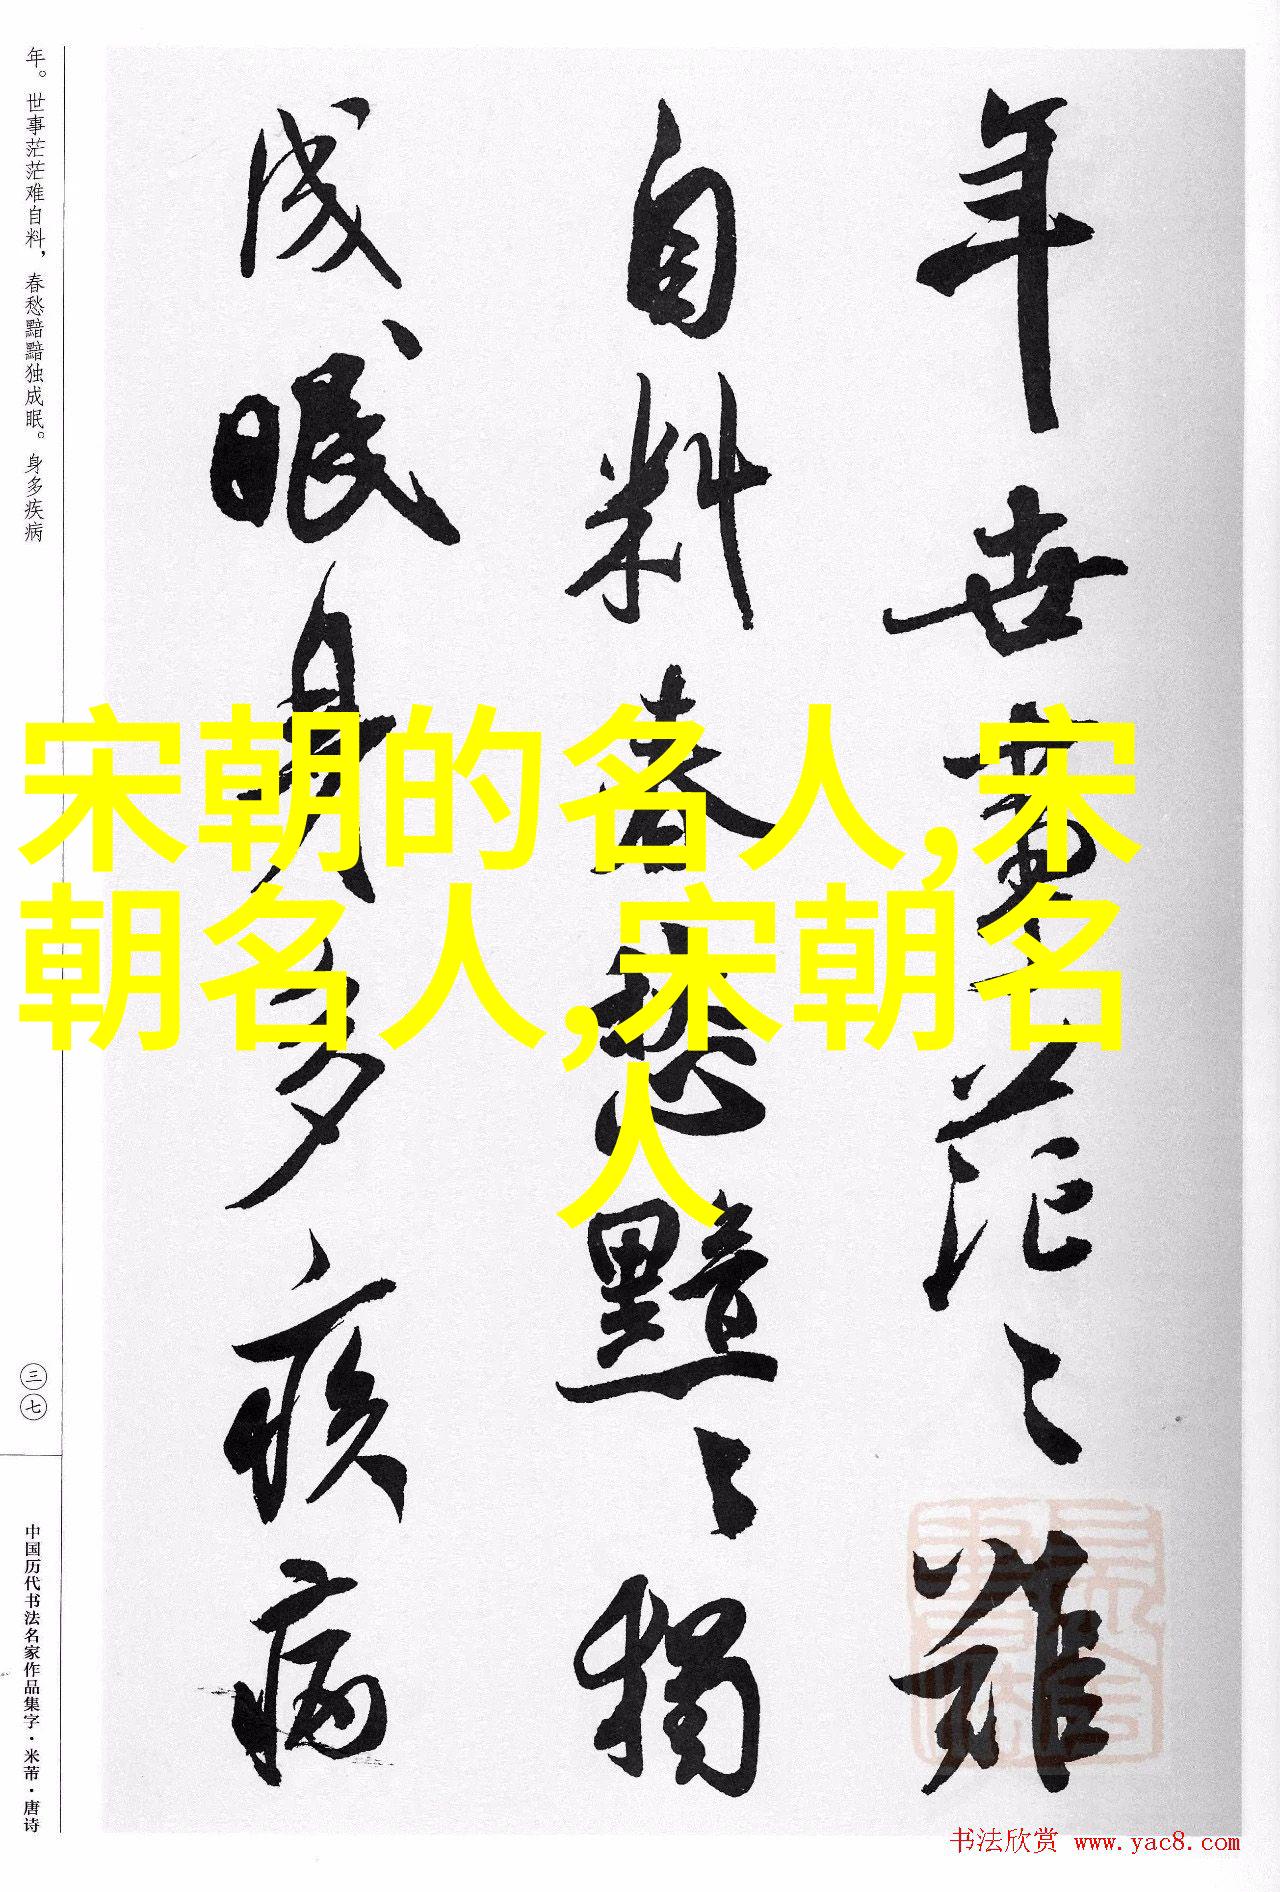 年世事茫〻難
自料春愁黯〻獨
成眠身多疾病
年。世事茫茫难自料，春愁黯黯独成眠。身多疾病
三七
中国历代书法名家作品集字·米芾·唐诗
宋朝的名人,宋
朝名人,宋朝名
人
书法欣赏 www.yac8.com